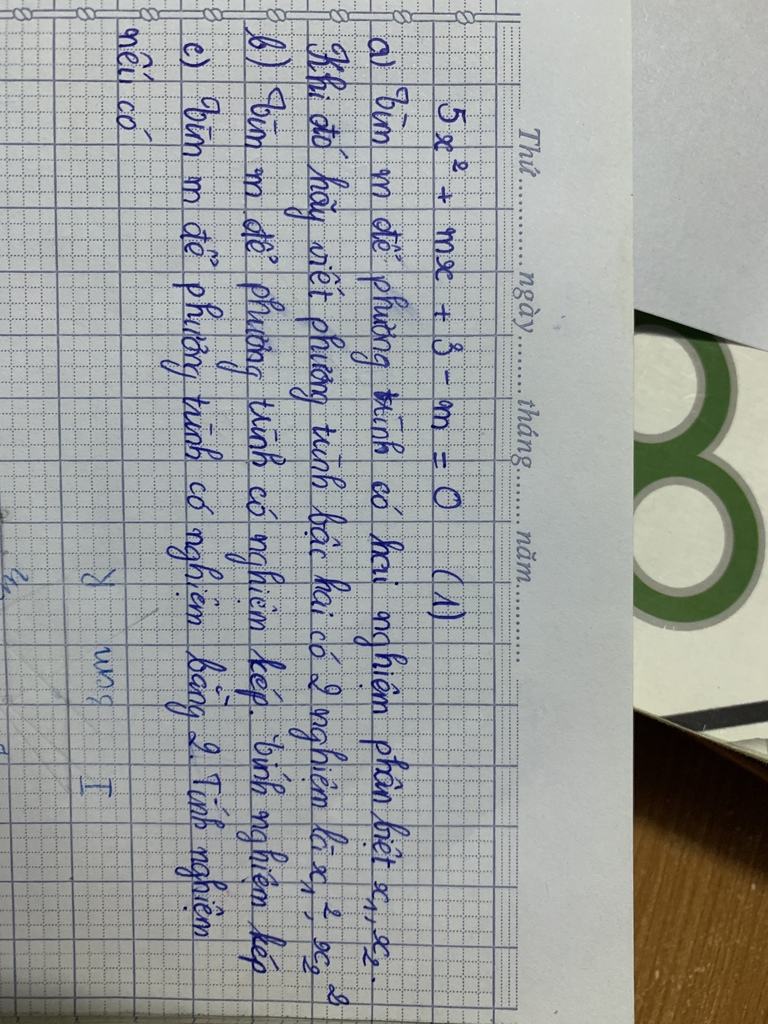 Thứ ............ ngày ......... tháng ......... năm............
5x² + mx + 3 - m = 0 (1)
a) Tìm m để phương trình có hai nghiệm phân biệt x₁, x₂.
Khi đó hãy viết phương trình bậc hai có 2 nghiệm là x₁², x₂²
b) Tìm m để phương trình có nghiệm kép. Tính nghiệm kép
c) Tìm m để phương trình có nghiệm bằng 2. Tính nghiệm
nếu có
8